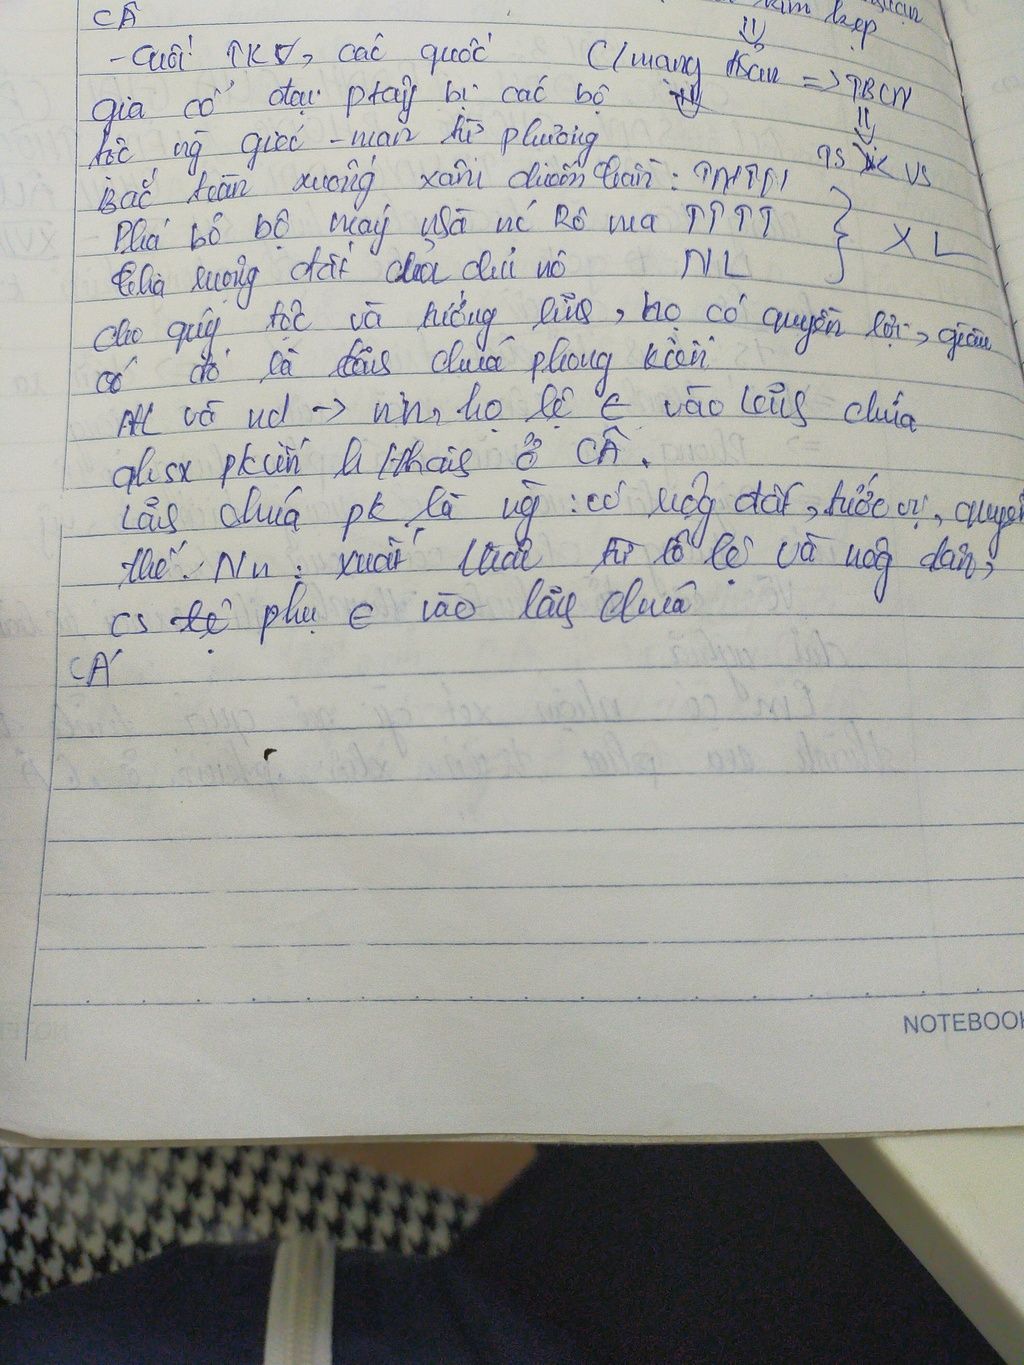 kìm kẹp
CÂ
- Cuối TKV, các quốc C/mạng tsản => TBCN
gia cổ đại ptây bị các bộ
tộc ng giéc-man từ phương TS VS
Bắc tràn xuống xâm chiếm
Phá bỏ bộ máy nhà nc Rô ma TTTT } XL
Chia ruộng đất của chủ nô NL
cho quý tộc và tướng lĩnh, họ có quyền lực, giàu
có đó là lãnh chúa phong kiến
và nd -> nn, họ lệ ∈ vào lãnh chúa
qhsx pkiến h thành ở CÂ.
Lãnh chúa pk là ng: có ruộg đất, tước vị, quyền
thế. Nn: xuất thân từ lô lệ và nog dân,
cs phụ ∈ vào lãnh chúa
CÁ
NOTEBOOK